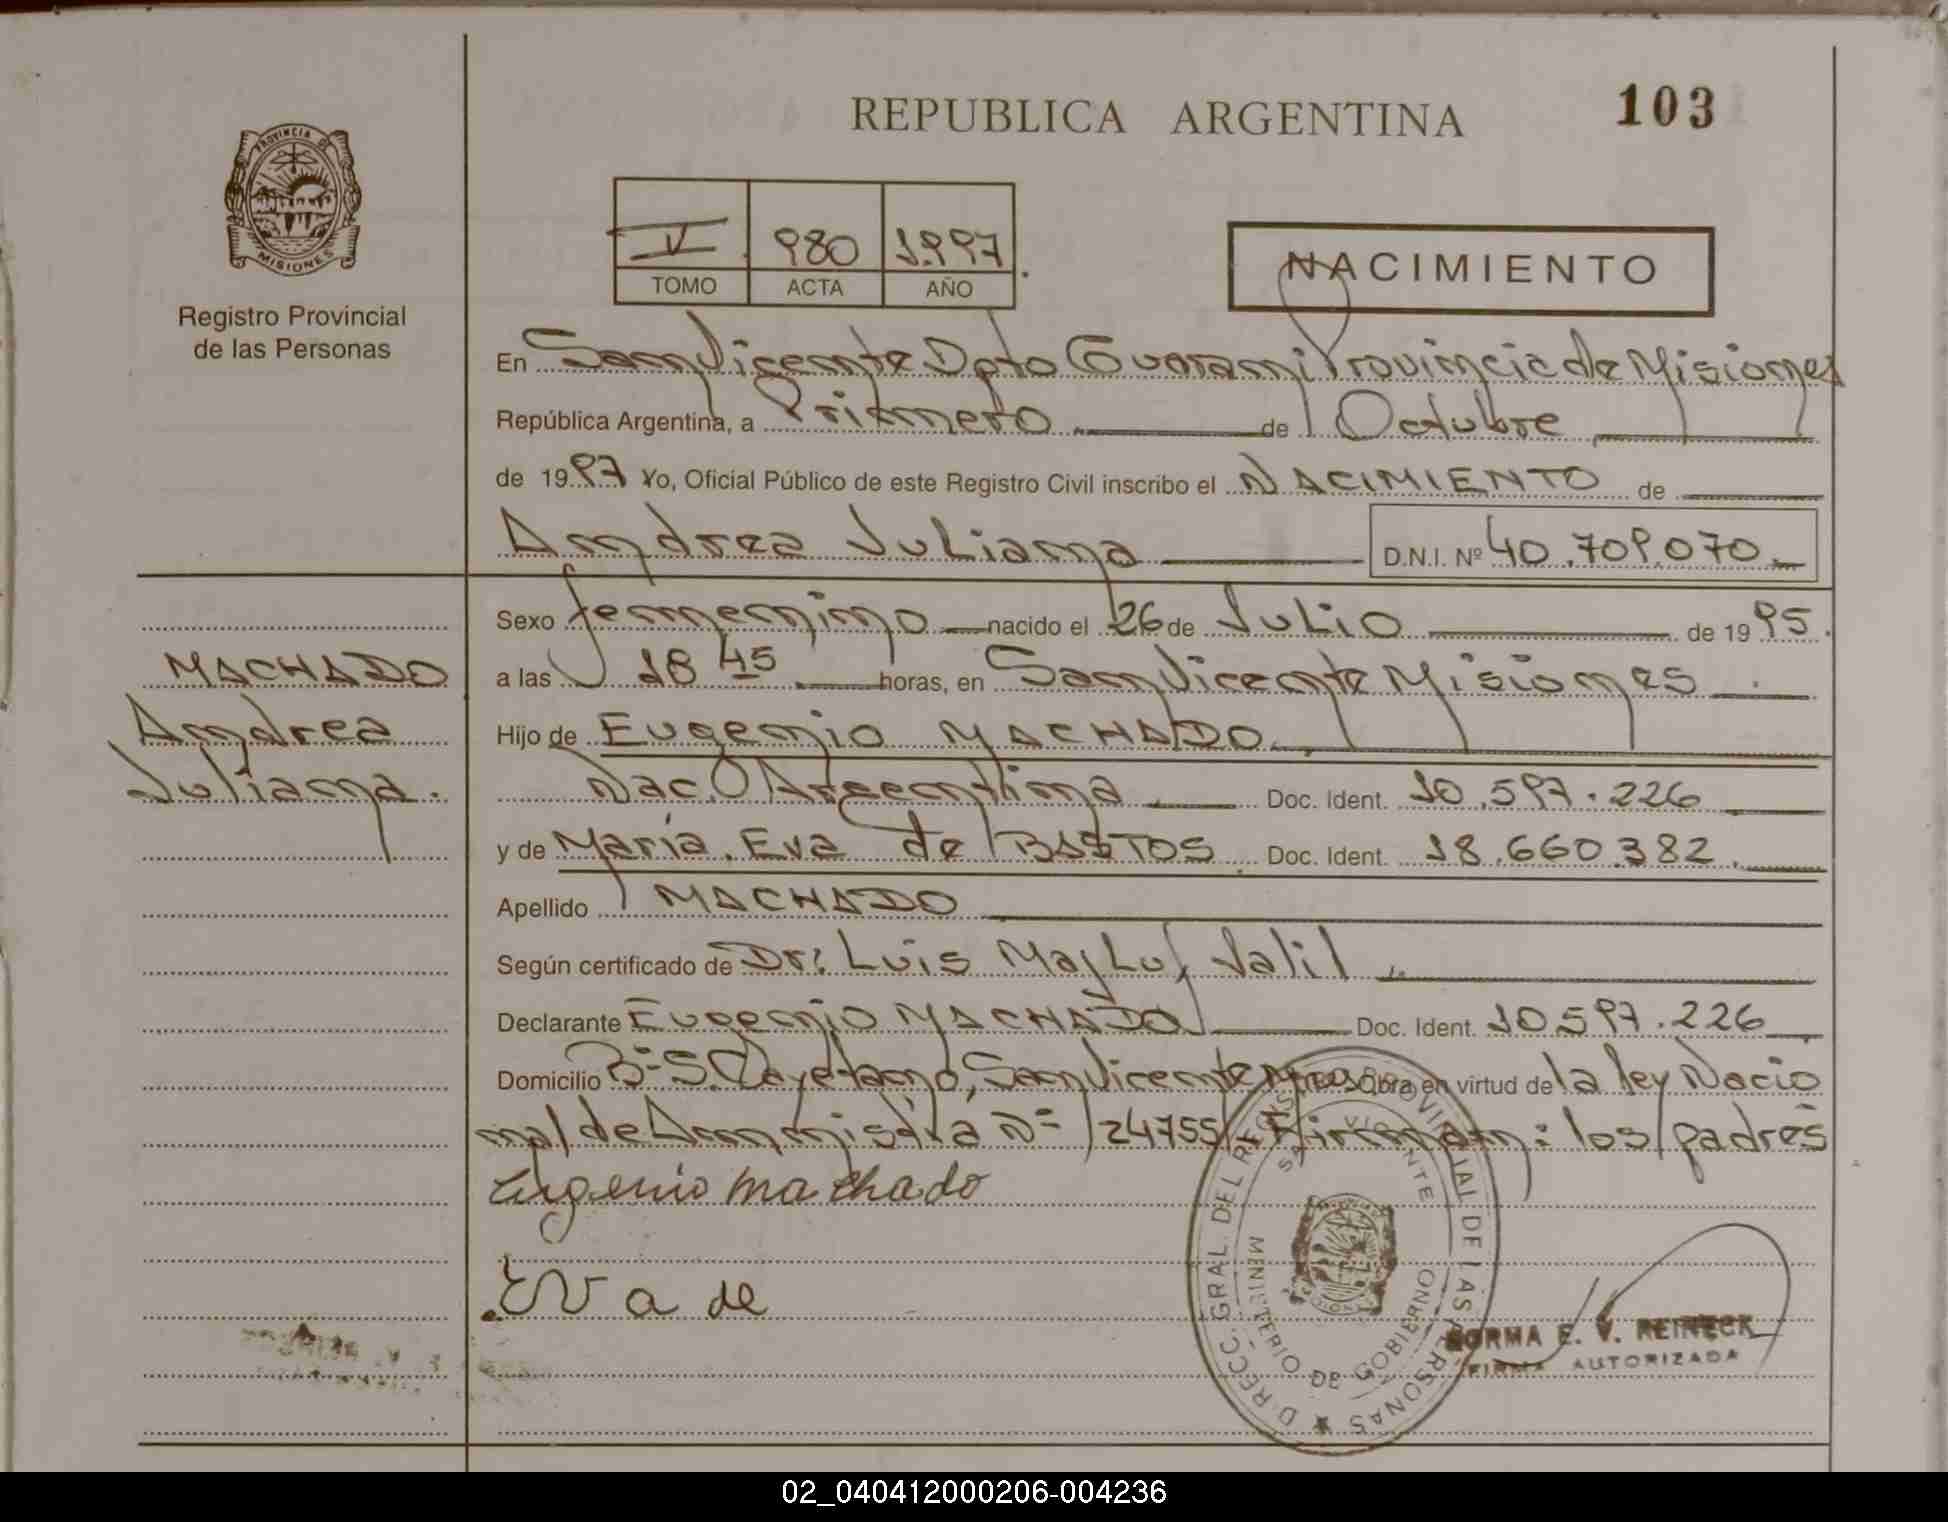 REPUBLICA ARGENTINA
103
PROVINCIA DE
MISIONES
Registro Provincial
de las Personas
V 980 1.997
TOMO ACTA AÑO
NACIMIENTO
En San Vicente Dpto Guarani Provincia de Misiones
República Argentina, a Primero de Octubre
de 19 97 Yo, Oficial Público de este Registro Civil inscribo el NACIMIENTO de
Andrea Juliana D.N.I. Nº 40.709.070.
Sexo femenino nacido el 26 de Julio de 19 95.
MACHADO
Andrea
Juliana.
a las 18 45 horas, en San Vicente Misiones
Hijo de Eugenio MACHADO
Nac. Argentina Doc. Ident. 10.597.226
y de María Eva de BASTOS Doc. Ident. 18.660.382.
Apellido MACHADO
Según certificado de Dr: Luis Majluf Jalil
Declarante Eugenio MACHADO Doc. Ident. 10.597.226
Domicilio B= S. Cayetano, San Vicente Mnes Obra en virtud de la ley Nacio
nal de Amnistía N= 24755 Firman: los padres
Eugenio machado
Eva de
DIRECC. GRAL. DEL REGISTRO PROVINCIAL DE LAS PERSONAS
SAN VICENTE
MINISTERIO DE GOBIERNO
NORMA E. V. REINECK
FIRMA AUTORIZADA
02_040412000206-004236